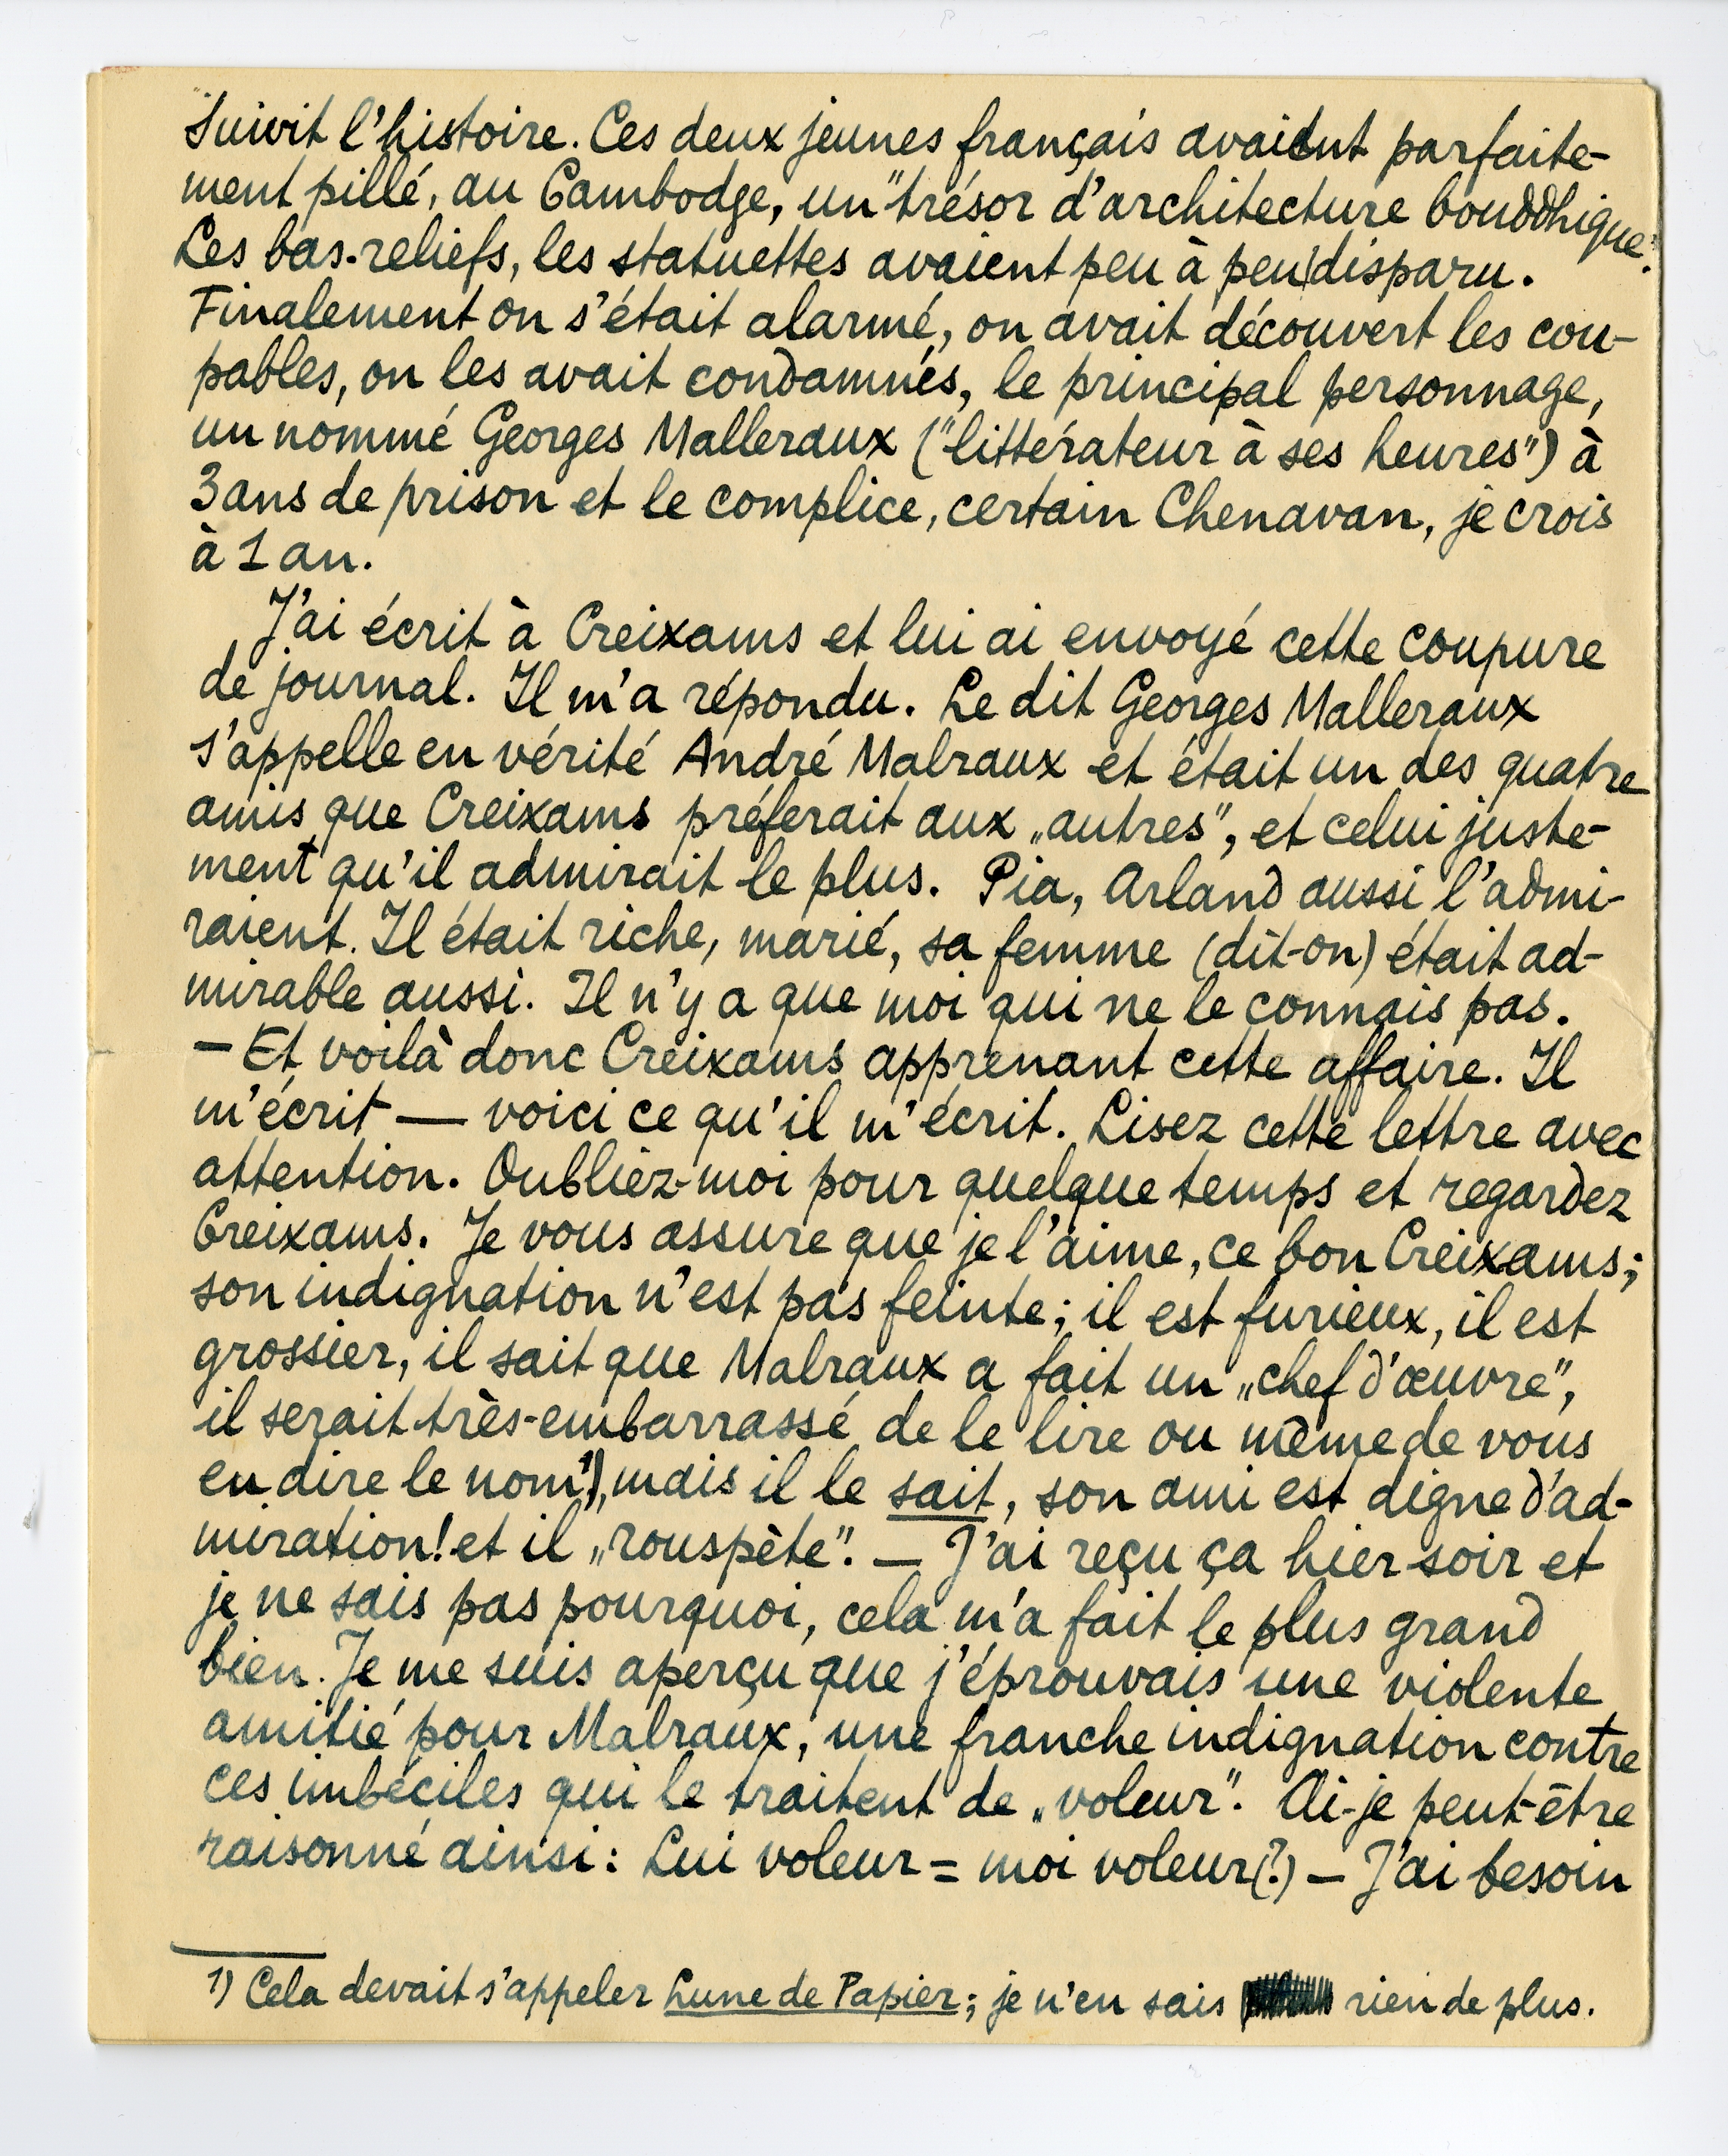 Suivit l'histoire. Ces deux jeunes français avaient parfaite-
ment pillé, au Cambodge, un "trésor d'architecture bouddhique".
Les bas-reliefs, les statuettes avaient peu à peu disparu.
Finalement on s'était alarmé, on avait découvert les cou-
pables, on les avait condamnés, le principal personnage,
un nommé Georges Malleraux ("littérateur à ses heures") à
3 ans de prison et le complice, certain Chenavan, je crois
à 1 an.
J'ai écrit à Creixams et lui ai envoyé cette coupure
de journal. Il m'a répondu. Le dit Georges Malleraux
s'appelle en vérité André Malraux et était un des quatre
amis que Creixams préferait aux „autres", et celui juste-
ment qu'il admirait le plus. Pia, Arland aussi l'admi-
raient. Il était riche, marié, sa femme (dit-on) était ad-
mirable aussi. Il n'y a que moi qui ne le connais pas.
— Et voilà donc Creixams apprenant cette affaire. Il
m'écrit — voici ce qu'il m'écrit. Lisez cette lettre avec
attention. Oubliez-moi pour quelque temps et regardez
Creixams. Je vous assure que je l'aime, ce bon Creixams;
son indignation n'est pas feinte; il est furieux, il est
grossier, il sait que Malraux a fait un „chef d'œuvre",
il serait très-embarrassé de le lire ou même de vous
en dire le nom 1), mais il le sait, son ami est digne d'ad-
miration! et il „rouspète". — J'ai reçu ça hier soir et
je ne sais pas pourquoi, cela m'a fait le plus grand
bien. Je me suis aperçu que j'éprouvais une violente
amitié pour Malraux, une franche indignation contre
ces imbéciles qui le traitent de „voleur". Ai-je peut-être
raisonné ainsi: Lui voleur = moi voleur (?) — J'ai besoin
1) Cela devait s'appeler Lune de Papier; je n'en sais rien de plus.